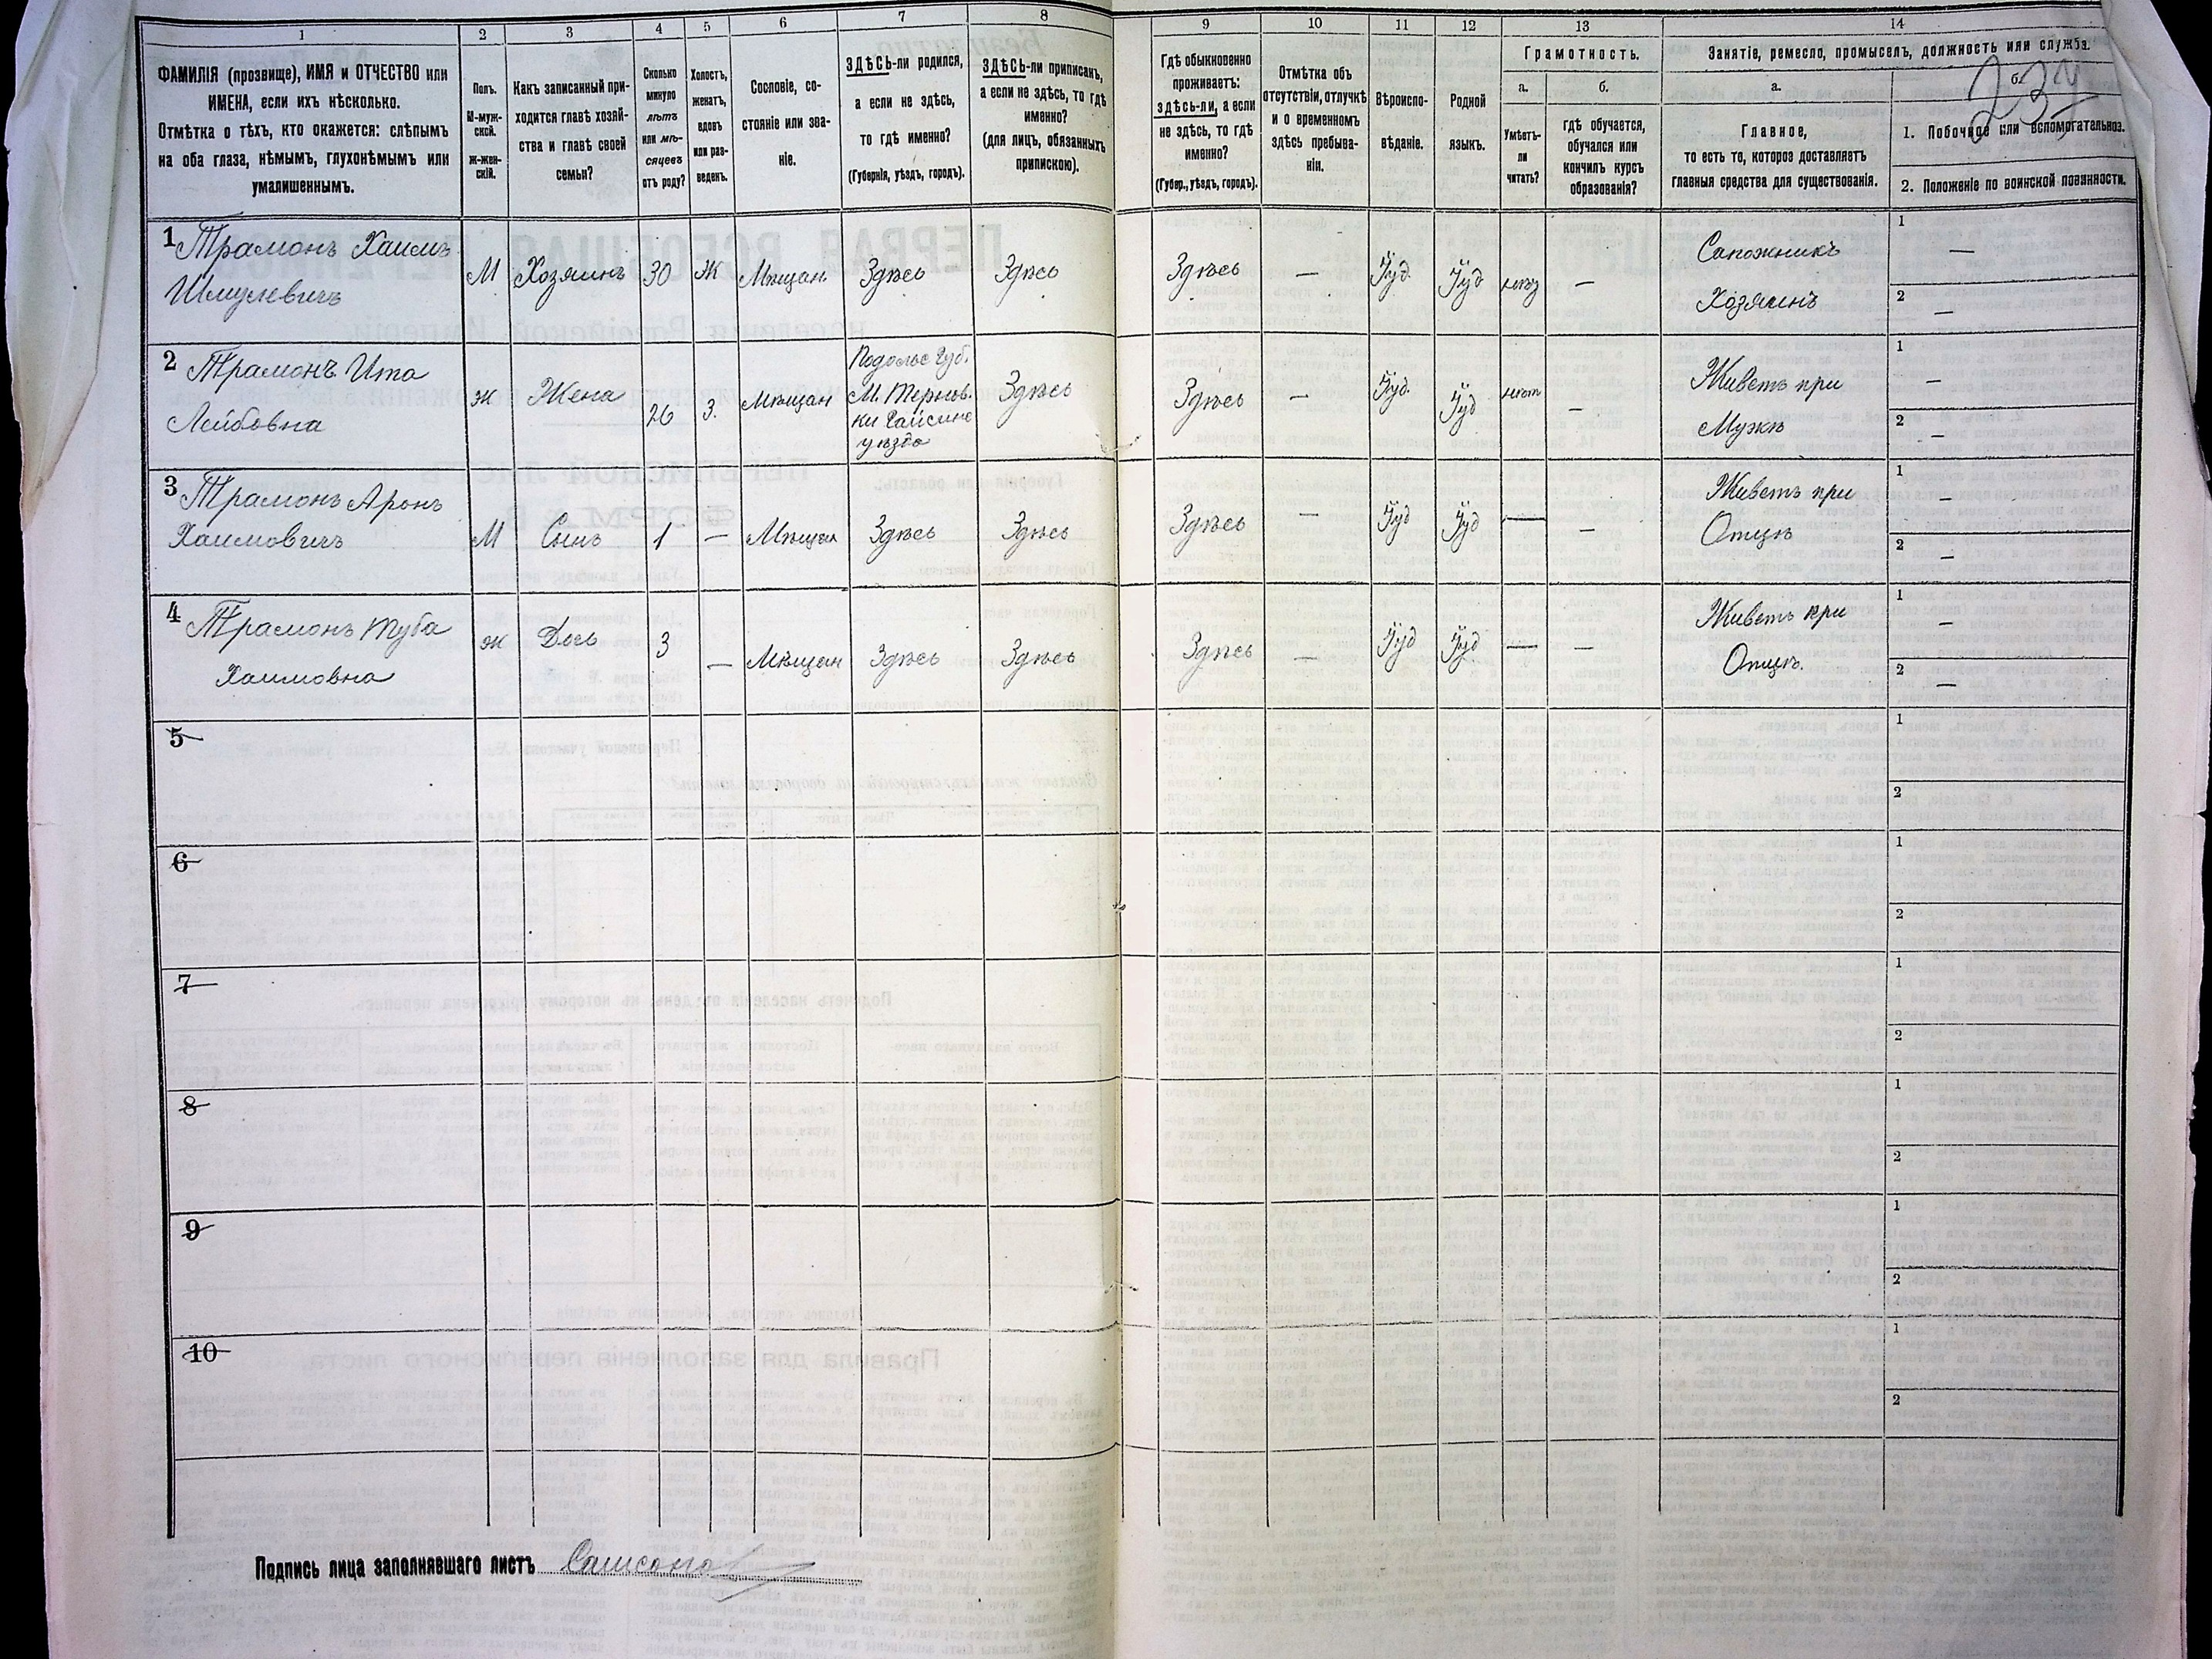 1 2 3 4 5 6 7 8 9 10 11 12 13 14
ФАМИЛІЯ (прозвище), ИМЯ и ОТЧЕСТВО или
ИМЕНА, если ихъ нѣсколько.
Отмѣтка о тѣхъ, кто окажется: слѣпымъ
на оба глаза, нѣмымъ, глухонѣмымъ или
умалишеннымъ.
Полъ.
М-муж-
ской.
Ж-жен-
скій.
Какъ записанный при-
ходится главѣ хозяй-
ства и главѣ своей
семьи?
Сколько
минуло
лѣтъ
или мѣ-
сяцевъ
отъ роду?
Холостъ,
женатъ,
вдовъ
или раз-
веденъ.
Сословіе, со-
стояніе или зва-
ніе.
ЗДѢСЬ-ли родился,
а если не здѣсь,
то гдѣ именно?
(Губернія, уѣздъ, городъ).
ЗДѢСЬ-ли приписанъ,
а если не здѣсь, то гдѣ
именно?
(для лицъ, обязанныхъ
припискою).
Гдѣ обыкновенно
проживаетъ:
здѣсь-ли, а если
не здѣсь, то гдѣ
именно?
(Губер., уѣздъ, городъ).
Отмѣтка объ
отсутствіи, отлучкѣ
и о временномъ
здѣсь пребыва-
ніи.
Вѣроиспо-
вѣданіе.
Родной
языкъ.
Грамотность.
а.
Умѣетъ-
ли
читать?
б.
гдѣ обучается,
обучался или
кончилъ курсъ
образованія?
Занятіе, ремесло, промыселъ, должность или служба.
а.
Главное,
то есть то, которое доставляетъ
главныя средства для существованія.
б.
1. Побочное или вспомогательное.
2. Положеніе по воинской повинности.
1 Трамонъ Хаимъ
Шмулевичъ
М Хозяинъ 30 Ж Мѣщан Здѣсь Здѣсь Здѣсь — Іуд. Іуд —
Сапожникъ
Хозяинъ
1 —
2 —
2 Трамонъ Ита
Лейбовна
ж Жена 26 З. Мѣщан
Подольс Губ.
М. Тернов-
ки Гайсинс
уѣзда
Здѣсь Здѣсь — Іуд. Іуд нѣт —
Живетъ при
Мужѣ
1 —
2 —
3 Трамонъ Аронъ
Хаимовичъ
М Сынъ 1 — Мѣщан Здѣсь Здѣсь Здѣсь — Іуд Іуд — —
Живетъ при
Отцѣ
1 —
2 —
4 Трамонъ Туба
Хаимовна
ж Дочь 3 — Мѣщан Здѣсь Здѣсь Здѣсь — Іуд Іуд — —
Живетъ при
Отцѣ.
1 —
2 —
5
1
2
6
1
2
7
1
2
8
1
2
9
1
2
10
1
2
Подпись лица заполнявшаго листъ